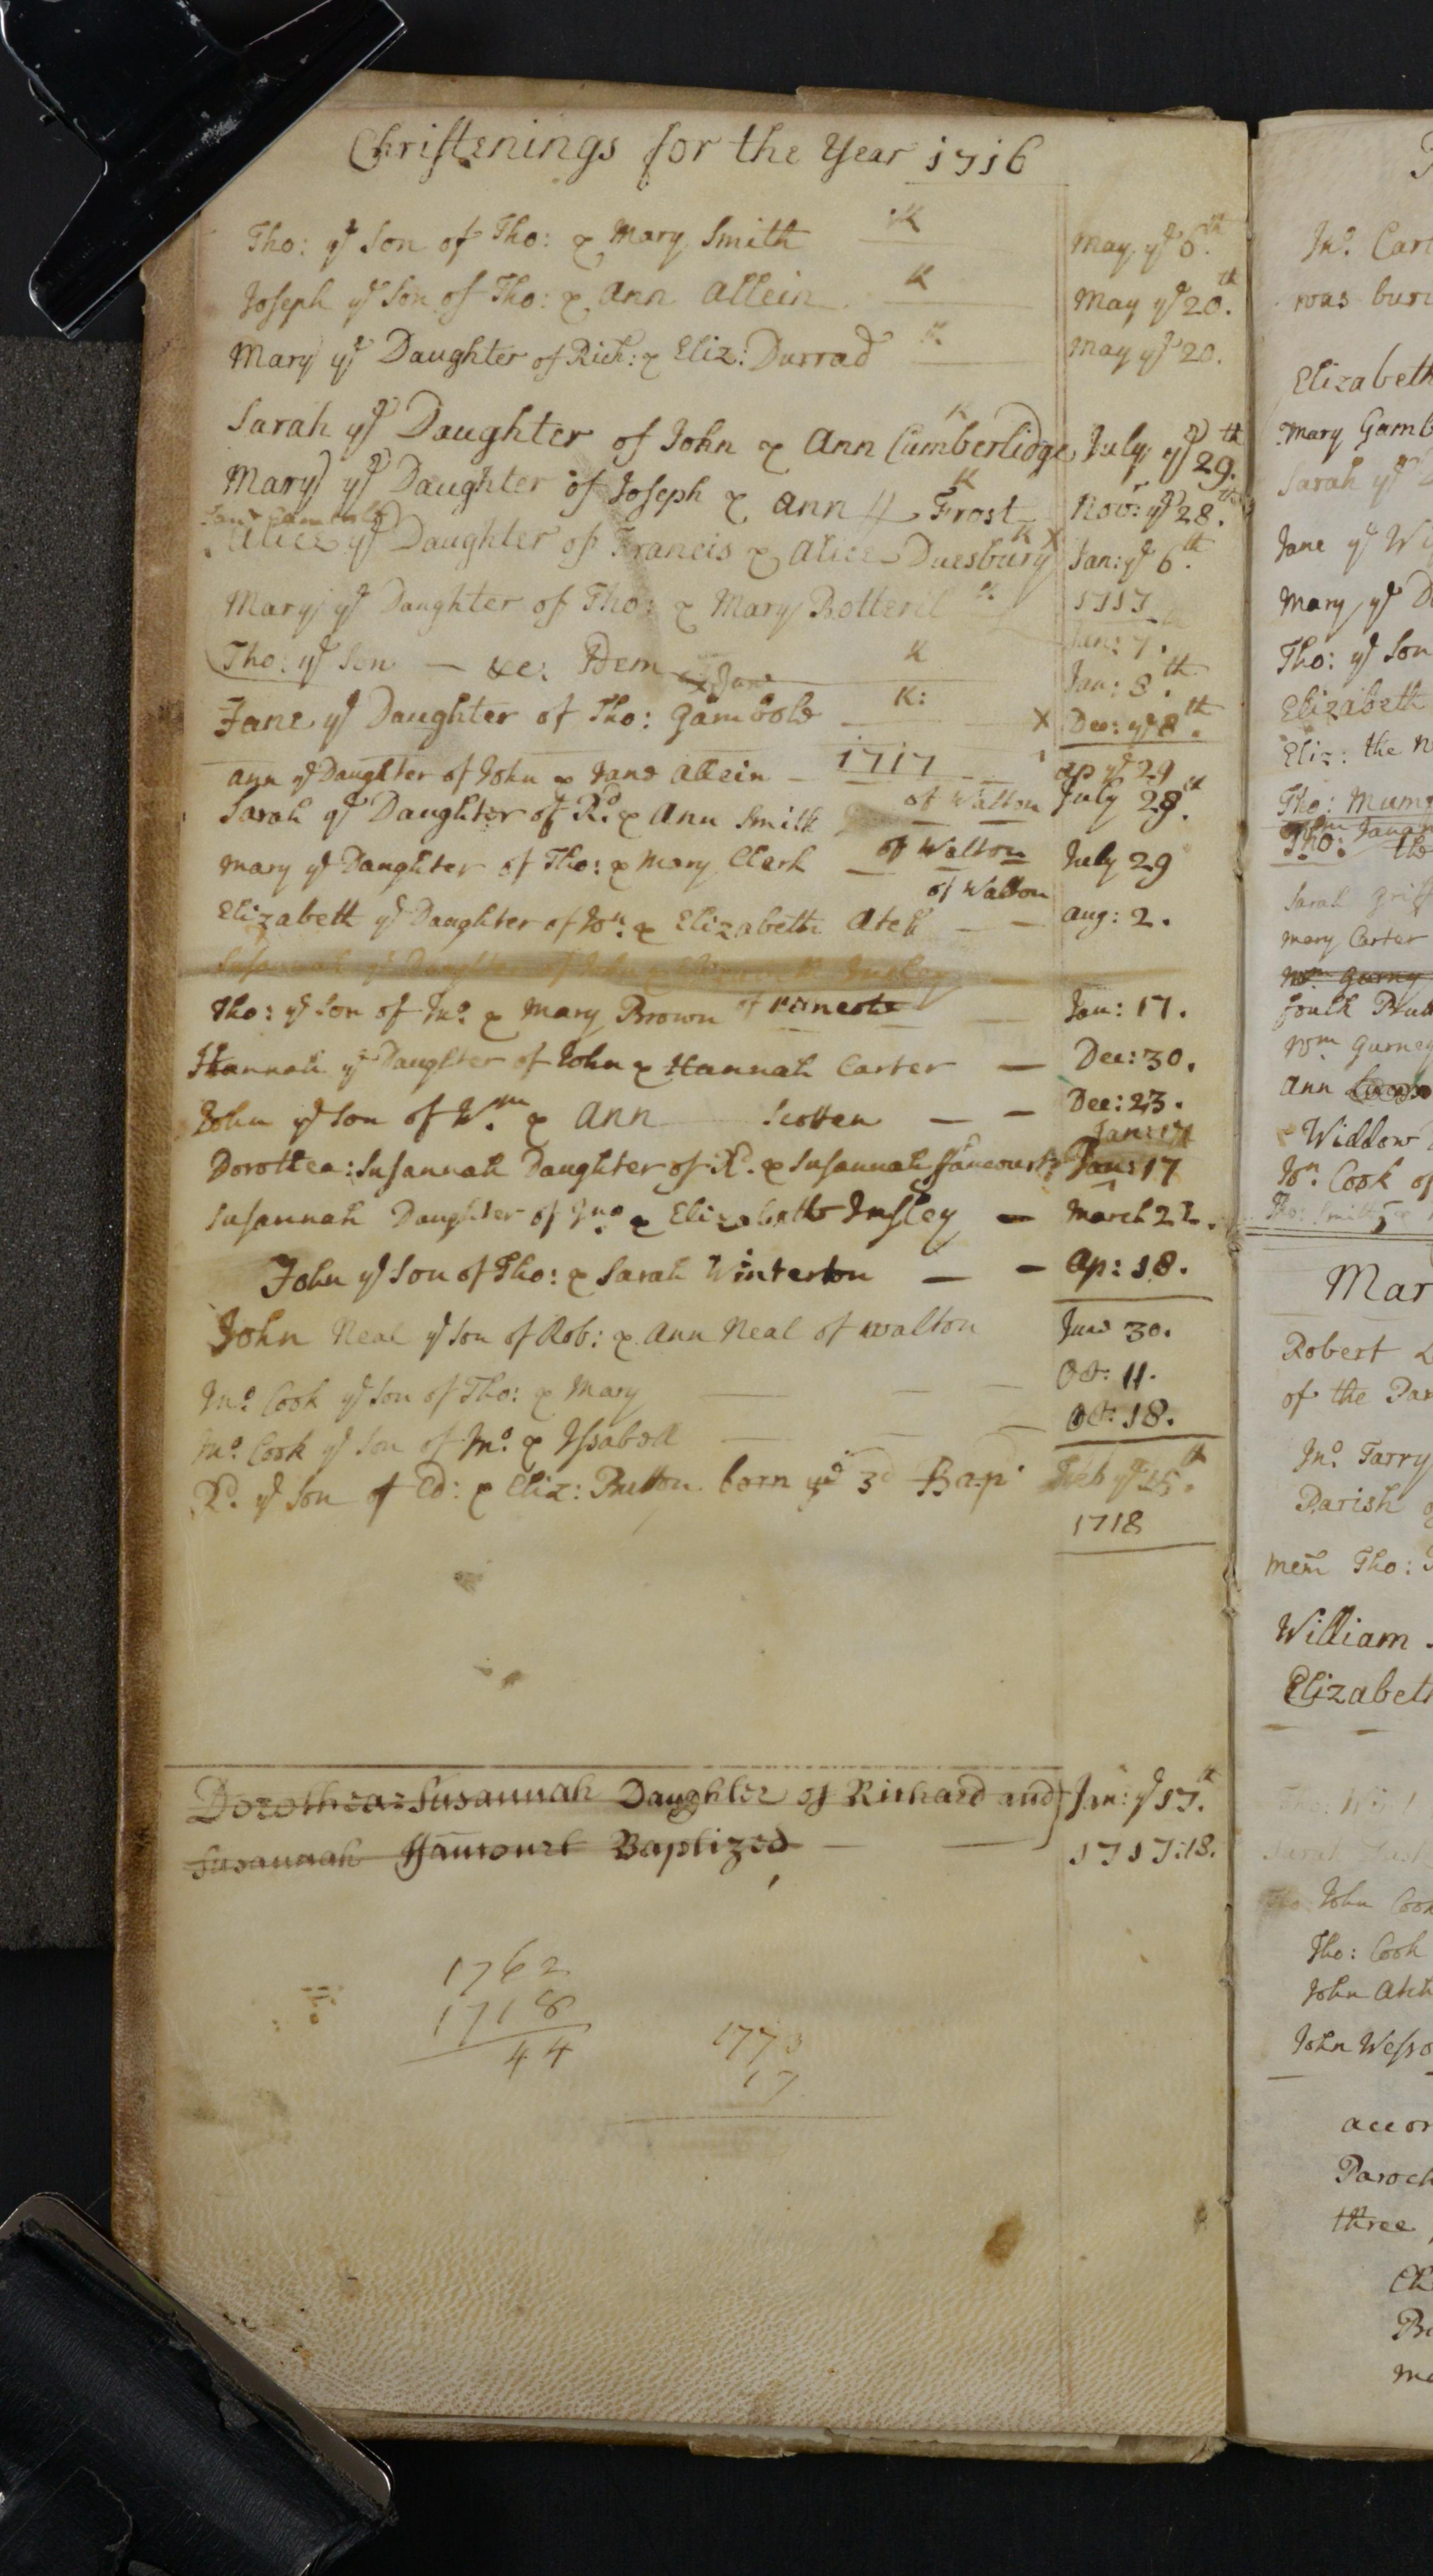 Christenings for the Year 1716
Tho: ye Son of Tho: & Mary Smith K May ye 6th.
Joseph ye Son of Tho: & Ann Allein K May ye 20.th
Mary ye Daughter of Rich: & Eliz: Durrad K May ye 20.
Sarah ye Daughter of John & Ann Camberlidge K July ye 29.th
Mary ye Daughter of Joseph & Ann Frost K Nov:r ye 28.th
Jane Gambold
Alice ye Daughter of Francis & Alice Duesbury K X Jan: ye 6.th
Mary ye Daughter of Tho: & Mary Botteril K 1717
Jan: 7.
Tho: ye Son — &c: Idem K Jan: 8.th
& Jane
Jane ye Daughter of Tho: Gambold K: X Dec: ye 8.th
Ann ye Daughter of John & Jane Allein — 1717 — Ap ye 29
Sarah ye Daughter of Rd. & Ann Smith of Walton July 28.th
Mary ye Daughter of Tho: & Mary Clerk — of Walton July 29
Elizabeth ye Daughter of Wm. & Elizabeth Atch of Walton — — Aug: 2.
Susannah ye Daughter of John & Elizabeth Insley
Tho: ye Son of Jno. & Mary Brown of — Jan: 17.
Hannah ye Daughter of John & Hannah Carter — Dec: 30.
John ye Son of Wm. & Ann Scotten — — Dec: 23.
Jan: 17
Dorothea: Susannah Daughter of Rd. & Susannah ffancourt Jan: 17
Susannah Daughter of Jno. & Elizabeth Insley — March 22.
John ye Son of Tho: & Sarah Winterton — — Ap: 18.
John Neal ye Son of Rob: & Ann Neal of Walton June 30.
Jno. Cook ye Son of Tho: & Mary — — — Oct: 11.
Jno. Cook ye Son of Jno. & Ysabell — — — Oct: 18.
Rd. ye Son of Ed: & Eliz: Button born ye 3d Bap. Feb ye 15.th
1718
Dorothea: Susannah Daughter of Richard and Jan: ye 17.th
Susannah ffancourt Baptized — — 1717:18.
1762
1718
44
1773
17
Jno. Cart
was buri
Elizabeth
Mary Gamb
Sarah ye D
Jane ye Wi
Mary ye D
Tho: ye Son
Elizabeth
Eliz: the
Tho: Mum
Tho: the
Sarah Griff
Mary Carter
Wm Gurney
Wm Gurney
Ann
Widdow
Wm. Cook of
Tho: Smith
Mar
Robert
of the Par
Jno. Tarry
Parish
Mem Tho:
William
Elizabeth
John Cook
Tho: Cook
John Atch
John Wesso
accor
Paroch
three